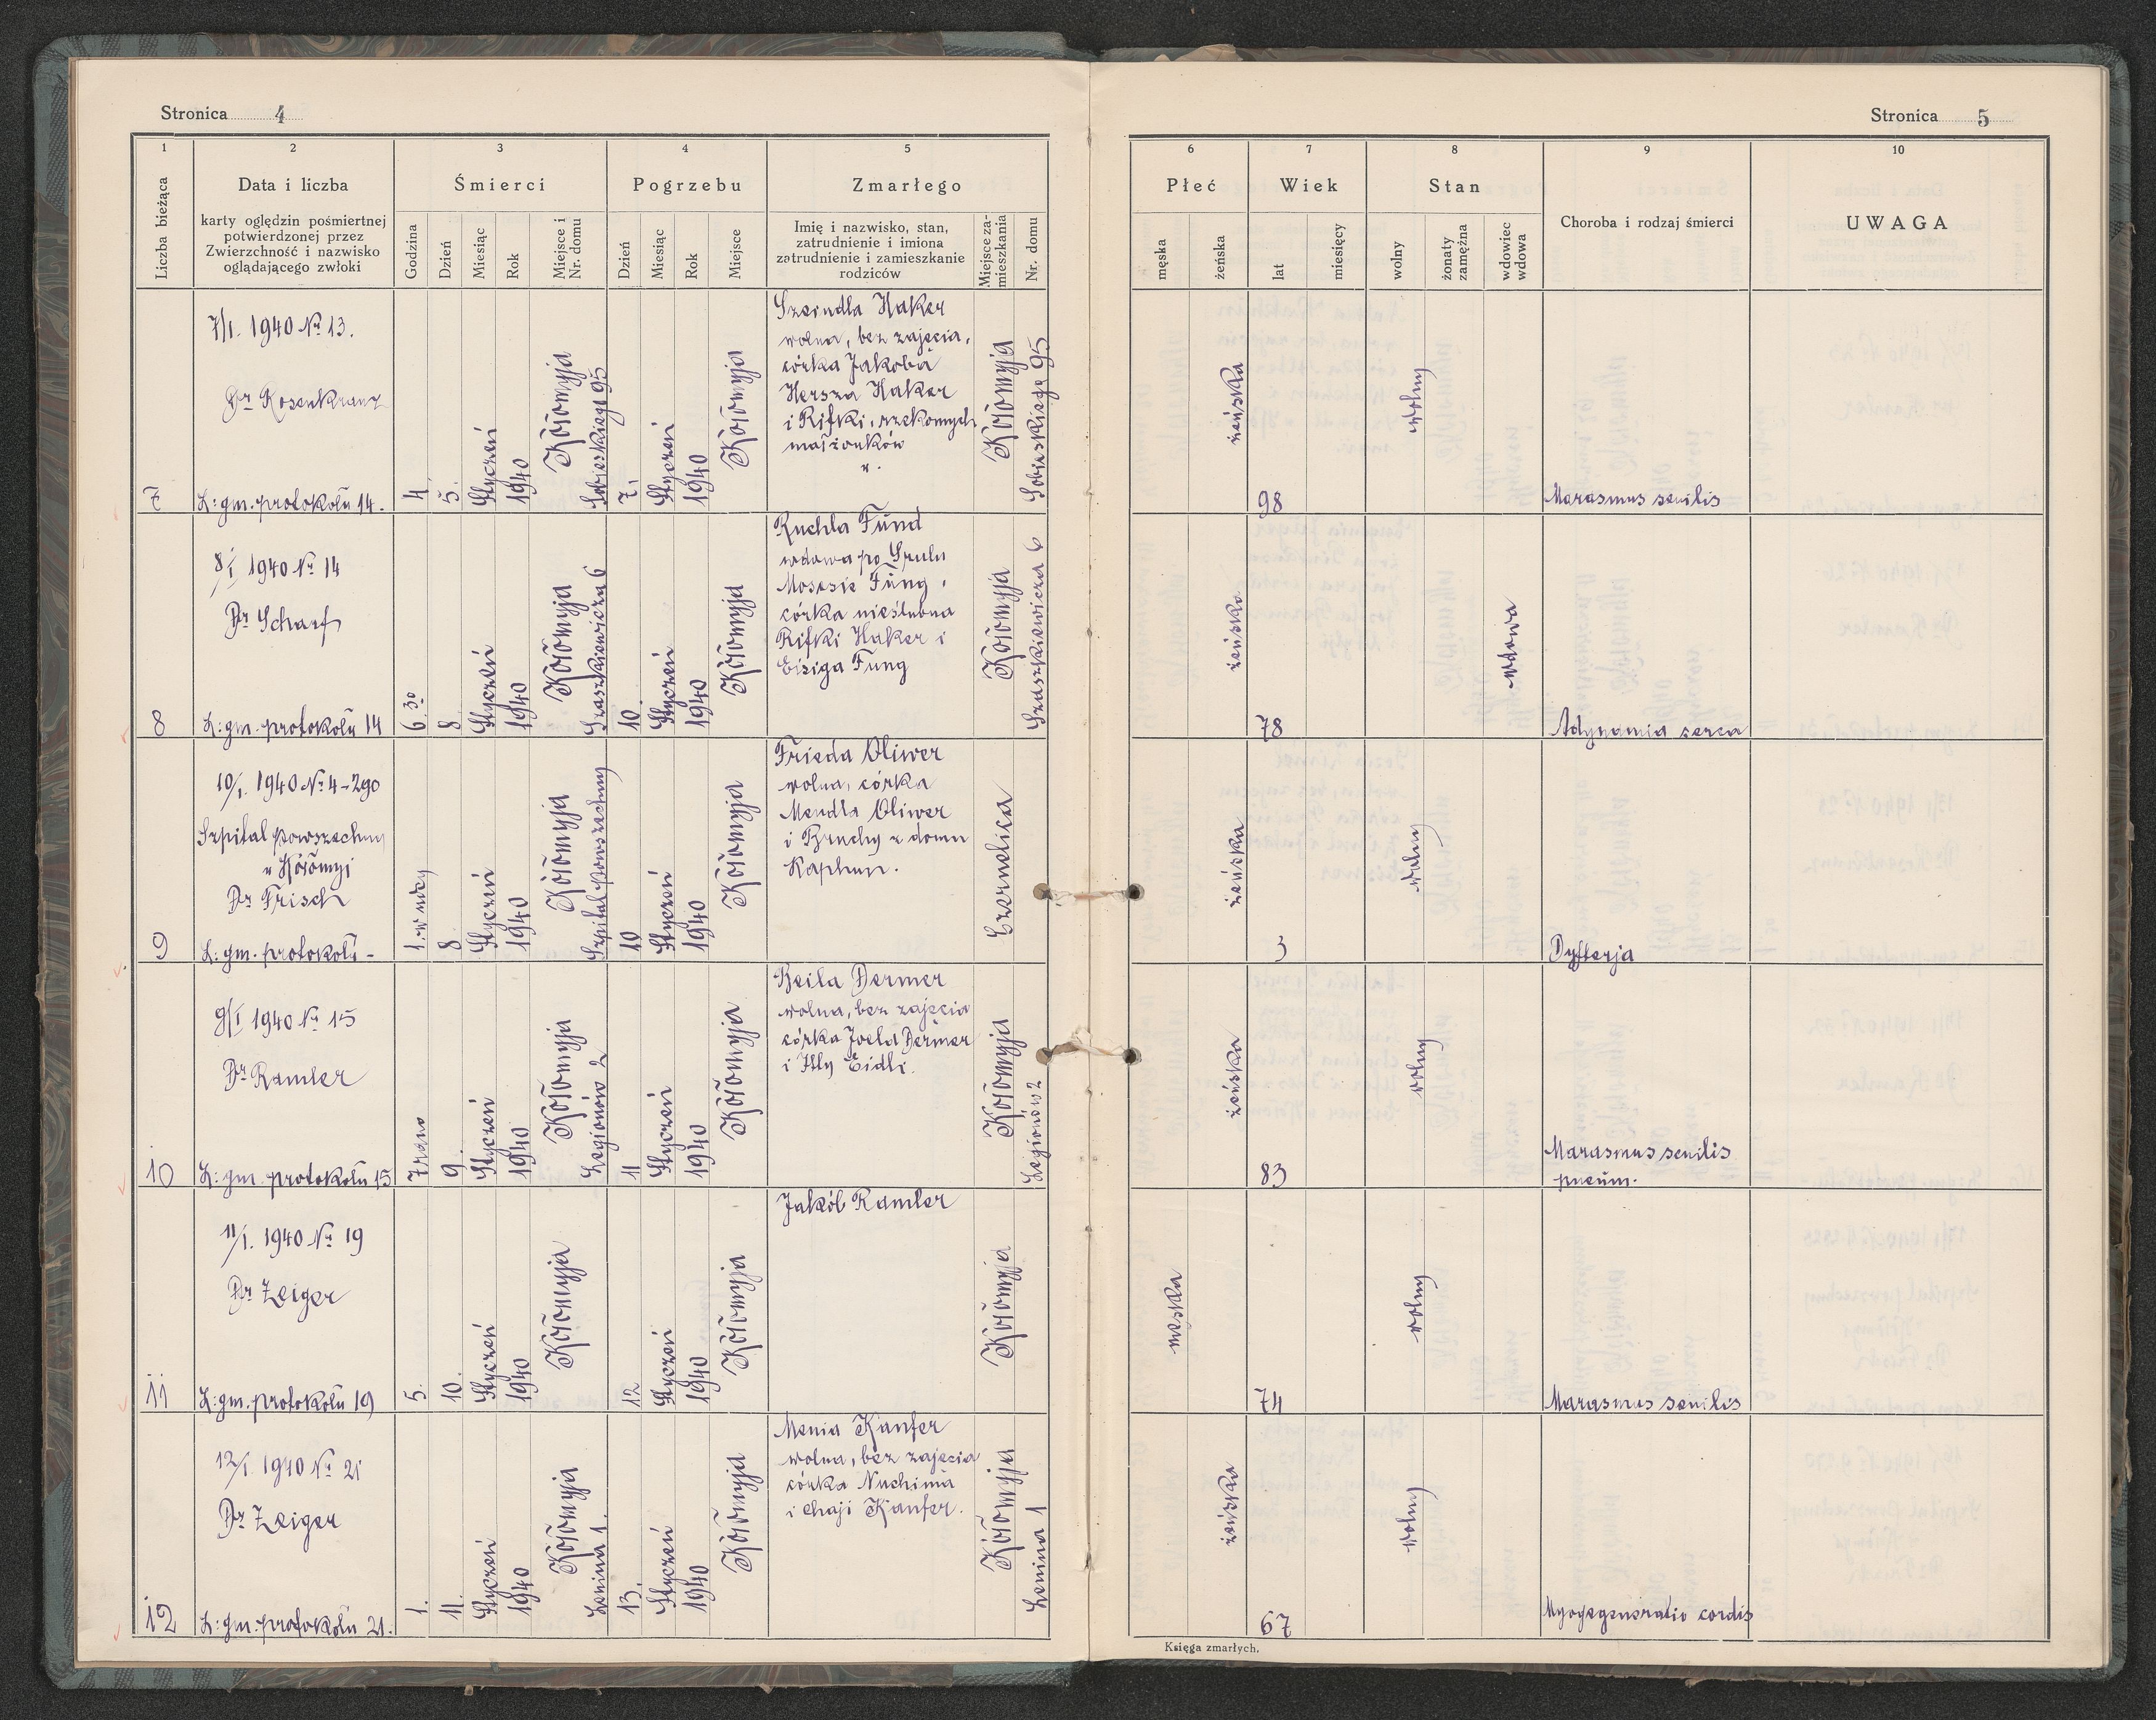 Stronica 4
1
2
3
4
5
Liczba bieżąca
Data i liczba
karty oględzin pośmiertnej
potwierdzonej przez
Zwierzchność i nazwisko
oglądającego zwłoki
Śmierci
Godzina
Dzień
Miesiąc
Rok
Miejsce i
Nr. domu
Pogrzebu
Dzień
Miesiąc
Rok
Miejsce
Zmarłego
Imię i nazwisko, stan,
zatrudnienie i imiona
zatrudnienie i zamieszkanie
rodziców
Miejsce za-
mieszkania
Nr. domu
7
7/I. 1940 № 13.
Dr Rosenkranz
L: gm. protokołu 14.
4.
5.
Styczeń
1940
Kołomyja
Sobieskiego 95
7.
Styczeń
1940
Kołomyja
Szeindla Haker
wolna, bez zajęcia,
córka Jakoba
Hersza Haker
i Rifki, rzekomych
małżonków
Kołomyja
Sobieskiego 95
8
8/I 1940 № 14
Dr Scharf
L: gm. protokołu 14
6.30
8
Styczeń
1940
Kołomyja
Szaszkiewicza 6
10.
Styczeń
1940
Kołomyja
Ruchla Fund
wdowa po Szulu
Mosesie Fung,
córka nieślubna
Rifki Haker i
Eisiga Fung
Kołomyja
Szaszkiewicza 6
9
10/I. 1940 № 4-290
Szpital powszechny
w Kołomyi
Dr Frisch
L: gm. protokołu -
1. w nocy
8
Styczeń
1940
Kołomyja
Szpital powszechny
10
Styczeń
1940
Kołomyja
Frieda Oliwer
wolna, córka
Mendla Oliwer
i Bruchy z domu
Kaphun.
Czernelica
10
9/I 1940 № 15
Dr Ramler
L: gm. protokołu 15
7 rano
9.
Styczeń
1940
Kołomyja
Legionów 2
11
Styczeń
1940
Kołomyja
Beila Dermer
wolna, bez zajęcia
córka Joela Dermer
i Itty Eidli.
Kołomyja
Legionów 2
11
11/I. 1940 № 19
Dr Zeiger
L: gm. protokołu 19
5.
10.
Styczeń
1940
Kołomyja
12
Styczeń
1940
Kołomyja
Jakób Ramler
Kołomyja
12
12/I. 1940 № 21
Dr Zeiger
L: gm. protokołu 21.
1.
11.
Styczeń
1940
Kołomyja
Lenina 1.
13.
Styczeń
1940
Kołomyja
Menia Kanfer
wolna, bez zajęcia
córka Nuchima
i Chaji Kanfer.
Kołomyja
Lenina 1
Stronica 5
6
7
8
9
10
Płeć
męska
żeńska
Wiek
lat
miesięcy
Stan
wolny
żonaty
zamężna
wdowiec
wdowa
Choroba i rodzaj śmierci
UWAGA
żeńska
98
wolny
Marasmus senilis
żeńska
78
wdowa
Adynamia serca
żeńska
3
wolny
Dyfterja
żeńska
83
wolny
Marasmus senilis
pneum.
męska
74
wolny
Marasmus senilis
żeńska
67
wolny
Myodegeneratio cordis
Księga zmarłych.